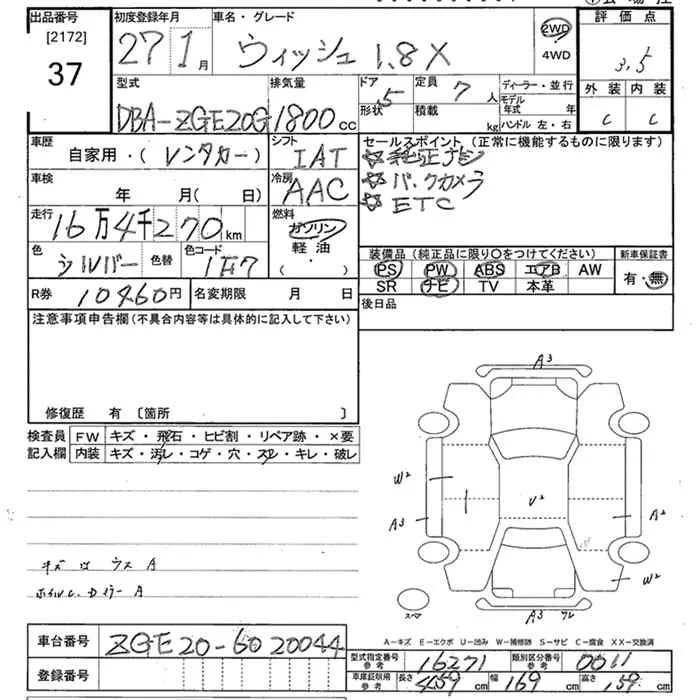 出品番号 初度登録年月 車名・グレード 評価点
[2172] 27 1月 ウィッシュ 1.8X 2WD 3.5
37 4WD
型式 排気量 ドア 5 定員 7人 ディーラー・並行 外装 内装
DBA-ZGE20G 1800cc 形状 積載 kg モデル年式 年 C C
ハンドル 左・右
車歴 自家用・(レンタカー) シフト IAT セールスポイント(正常に機能するものに限ります)
☆純正ナビ
車検 年 月(日) 冷房 AAC ☆バックカメラ
☆ETC
走行 16万4千270km 燃料 ガソリン
軽油
・( )
色 シルバー 色替 色コード 1F7 装備品(純正品に限り○をつけてください) 新車保証書
PS PW ABS エアB AW 有・無
R券 10460円 名変期限 月 日 SR ナビ TV 本革
後日品
注意事項申告欄(不具合内容等は具体的に記入して下さい)
修復歴 有 [箇所 ]
検査員 FW キズ・飛石・ヒビ割・リペア跡・×要
記入欄 内装 キズ・汚レ・コゲ・穴・スレ・キレ・破レ
A3
W2
A3
V2
A2
W2
キズ ウス A
A3
スペア
A-キズ E-エクボ U-凹み W-補修跡 S-サビ C-腐食 XX-交換済
車台番号 ZGE20-6020044
型式指定番号 参考 16271 類別区分番号 参考 0011
登録番号 車庫証明用 参考 長さ 459cm 幅 169cm 高さ 159cm